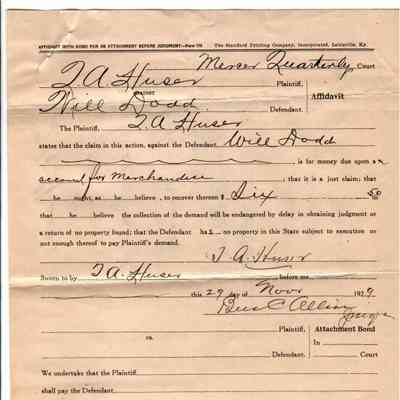 AFFIDAVIT WITH BOND FOR AN ATTACHMENT BEFORE JUDGMENT—Form The Standard Printing Company, Incorporated, Louisville, Ky.
Mercer Quarterly Court
T. A. Huser Plaintiff,
against Affidavit
Will Dodd Defendant.
The Plaintiff, T A Huser
states that the claim in this action, against the Defendant Will Dodd
, is for money due upon a
account for Merchandise ; that it is a just claim; that
he ought, as he believe , to recover thereon $ Six 50
that he believe the collection of the demand will be endangered by delay in obtaining judgment or
a return of no property found; that the Defendant has no property in this State subject to execution or
not enough thereof to pay Plaintiff's demand.
T. A. Huser
Sworn to by T. A. Huser before me
this 29 day of Novr 1929
Ben C Allin
Judge
Plaintiff, Attachment Bond
vs. In
Defendant. Court
We undertake that the Plaintiff
shall pay the Defendant